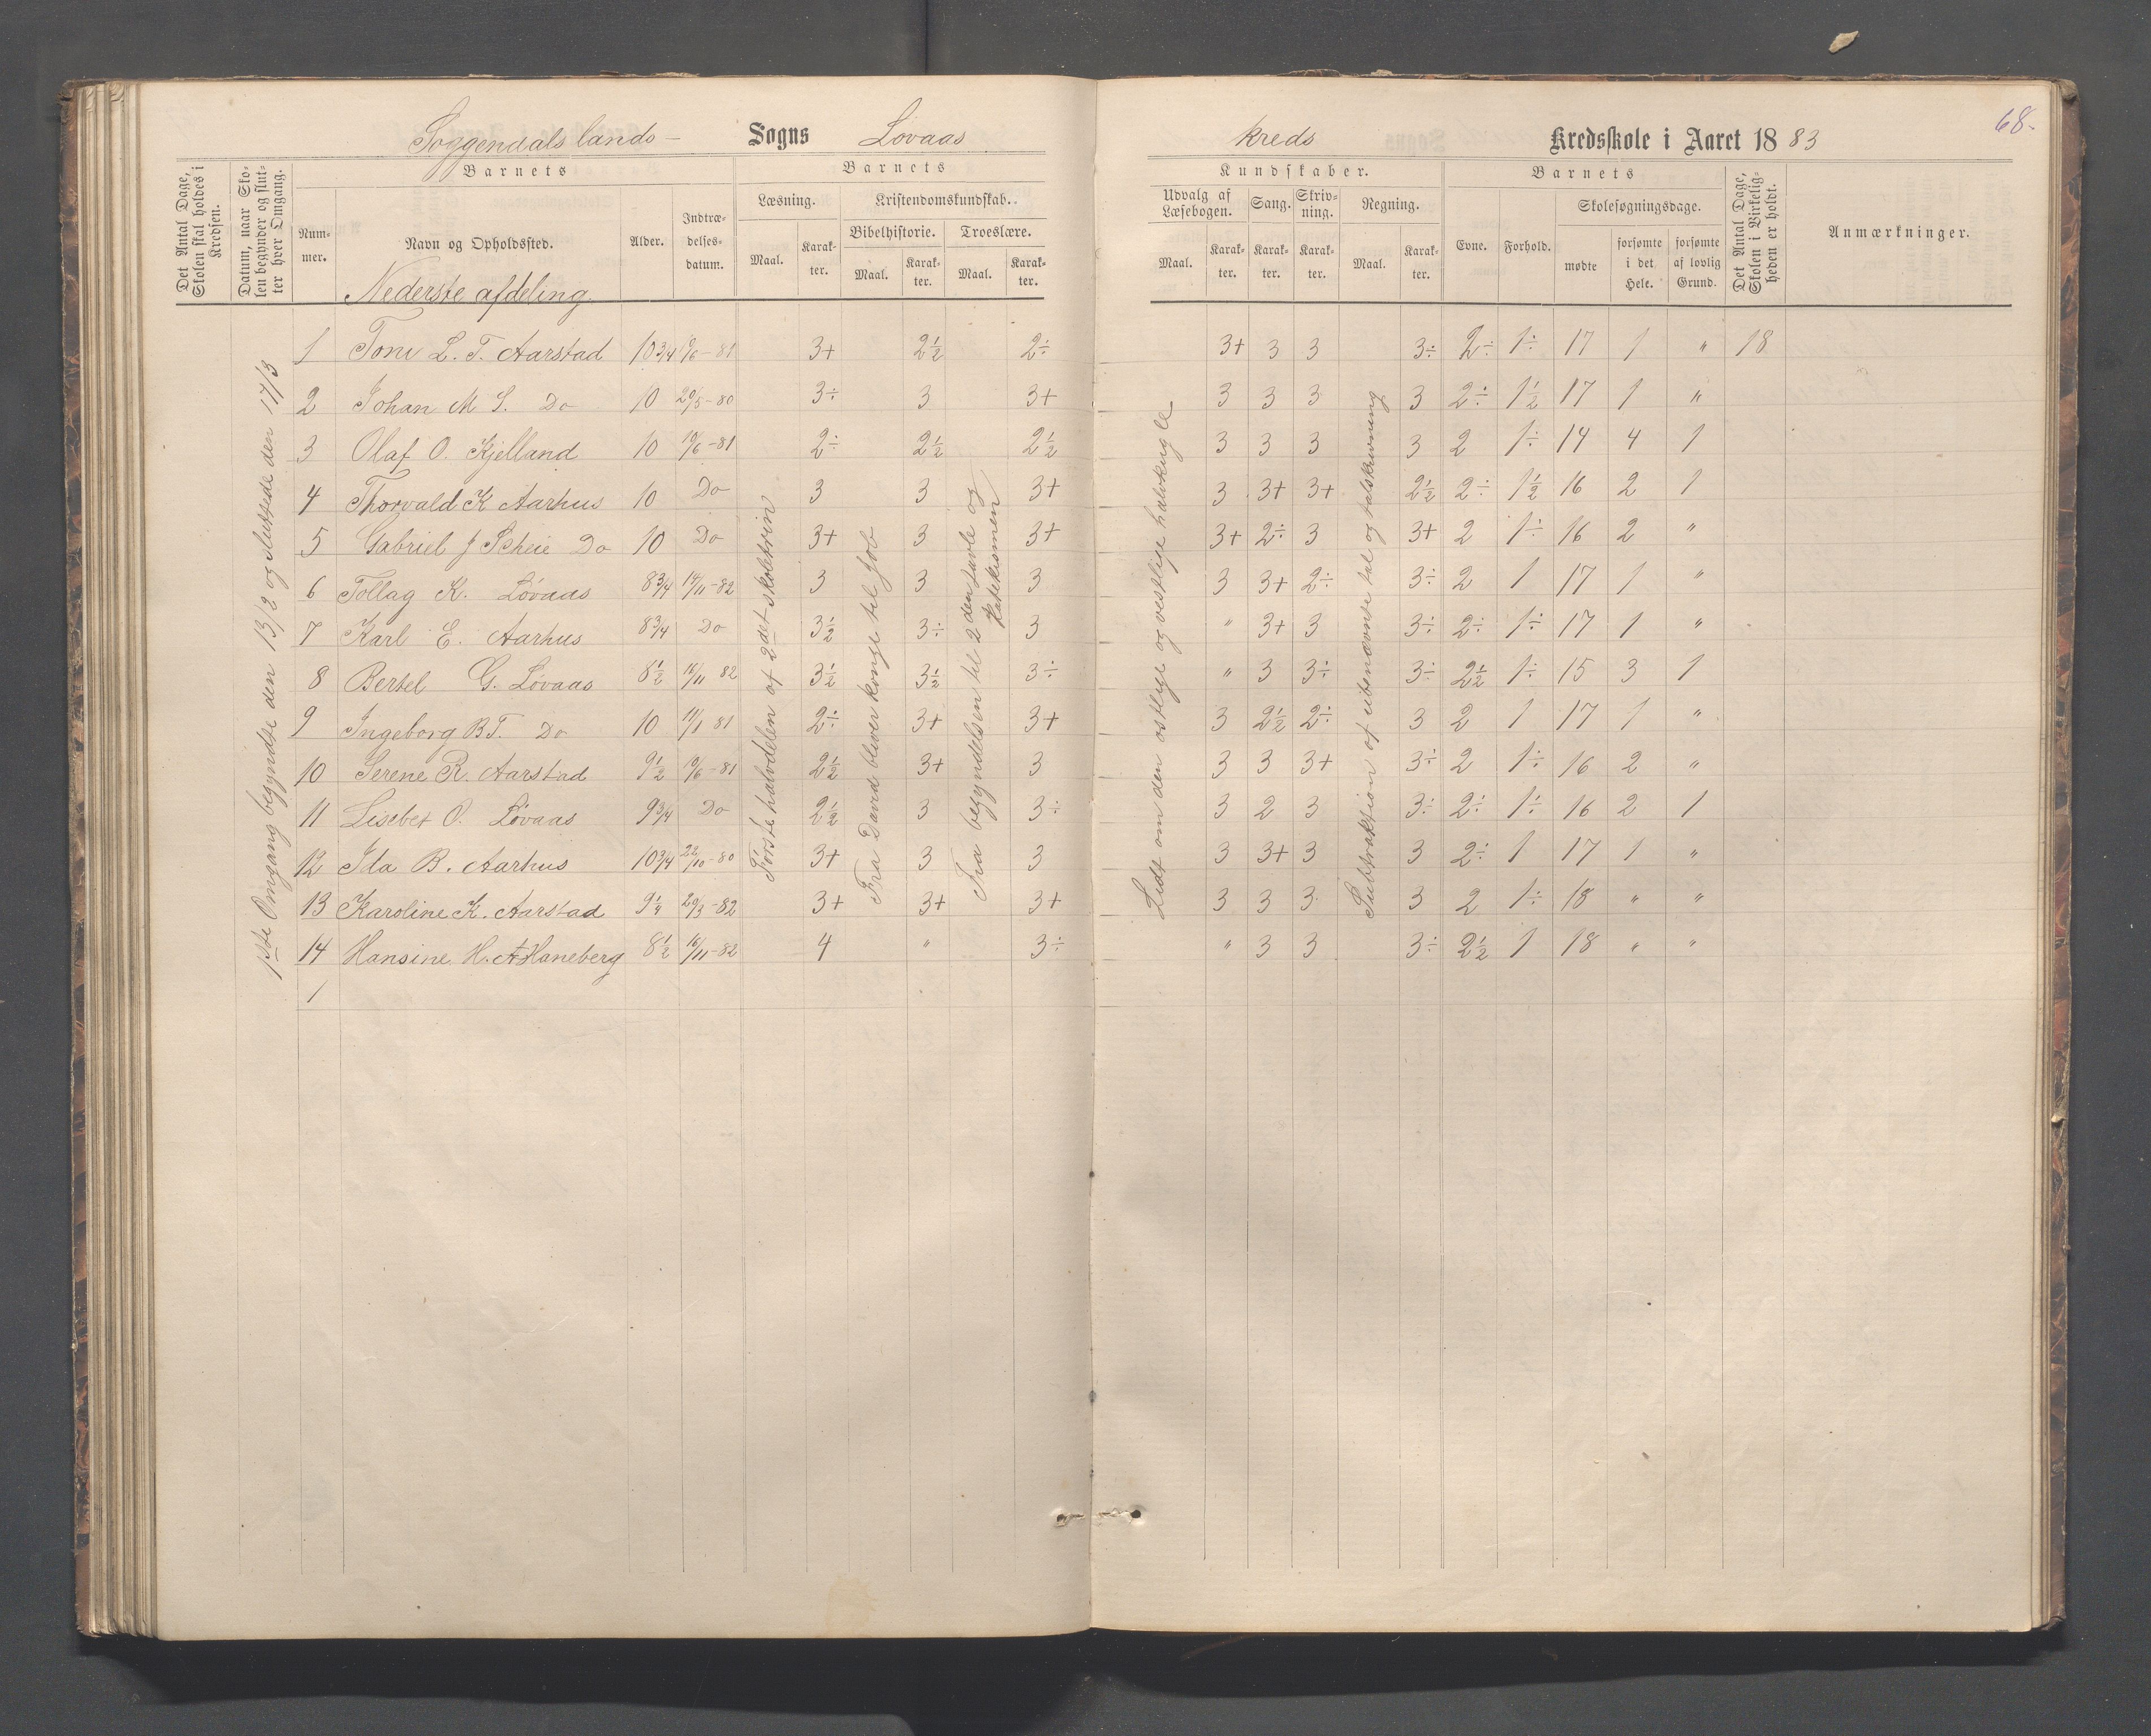 68.
Soggendals lands- Sogns Lovaas kreds Kredsskole i Aaret 1883
Det Antal Dage, Skolen skal holdes i Kredsen.
Datum, naar Skolen begynder og slutter hver Omgang.
Barnets
Nummer.
Navn og Opholdssted.
Alder.
Indtrædelsesdatum.
Barnets
Læsning.
Maal.
Karakter.
Kristendomskundskab.
Bibelhistorie.
Maal.
Karakter.
Troeslære.
Maal.
Karakter.
Kundskaber.
Udvalg af Læsebogen.
Maal.
Karakter.
Sang.
Karakter.
Skrivning.
Karakter.
Regning.
Maal.
Karakter.
Barnets
Evne.
Forhold.
Skolesøgningsdage.
mødte
forsømte i det Hele.
forsømte af lovlig Grund.
Det Antal Dage, Skolen i Virkeligheden er holdt.
Anmærkninger.
Nederste afdeling.
1ste Omgang begyndte den 13/2 og sluttede den 17/3
Første halvdelen af 2det skoletrin
Fra David bliver konge til Job
Fra begyndelsen til 2den tavle og Katekismen
Lidt om den østlige og vestlige halvkugle
Subtraktion af ubenævnte tal og talskrivning
1 Toni L. T. Aarstad 10 3/4 9/6-81 3+ 2½ 2÷ 3+ 3 3 3÷ 2÷ 1÷ 17 1 " 18
2 Johan M S. Do 10 20/5-80 3÷ 3 3+ 3 3 3 3 2÷ 1½ 17 1 "
3 Olaf O. Kjelland 10 19/6-81 2÷ 2½ 2½ 3 3 3 3 2 1÷ 14 4 1
4 Thorvald K Aarhus 10 Do 3 3 3+ 3 3+ 3+ 2½ 2÷ 1½ 16 2 1
5 Gabriel J Scheie Do 10 Do 3+ 3 3+ 3+ 2÷ 3 3+ 2 1÷ 16 2 "
6 Tollag K. Lövaas 8 3/4 14/11-82 3 3 3 3 3+ 2÷ 3÷ 2 1 17 1 "
7 Karl E. Aarhus 8 3/4 Do 3½ 3÷ 3 " 3+ 3 3÷ 2÷ 1÷ 17 1 "
8 Bertel G. Lövaas 8½ 16/11 82 3½ 3½ 3÷ " 3 3÷ 3÷ 2½ 1÷ 15 3 1
9 Ingeborg B T. Do 10 11/1 81 2÷ 3+ 3+ 3 2½ 2÷ 3 2 1 17 1 "
10 Serene R. Aarstad 9½ 9/6-81 2½ 3+ 3 3 3 3+ 3÷ 2 1÷ 16 2 "
11 Lisebet O. Lövaas 9 3/4 Do 2½ 3 3÷ 3 2 3 3÷ 2÷ 1÷ 16 2 1
12 Ida B. Aarhus 10 3/4 22/10-80 3+ 3 3 3 3+ 3 3 2÷ 1 17 1 "
13 Karoline K. Aarstad 9¼ 29/3-82 3+ 3+ 3+ 3 3 3 3 2 1÷ 18 " "
14 Hansine H. Haneberg 8½ 16/11-82 4 " 3÷ " 3 3 3÷ 2½ 1 18 " "
1